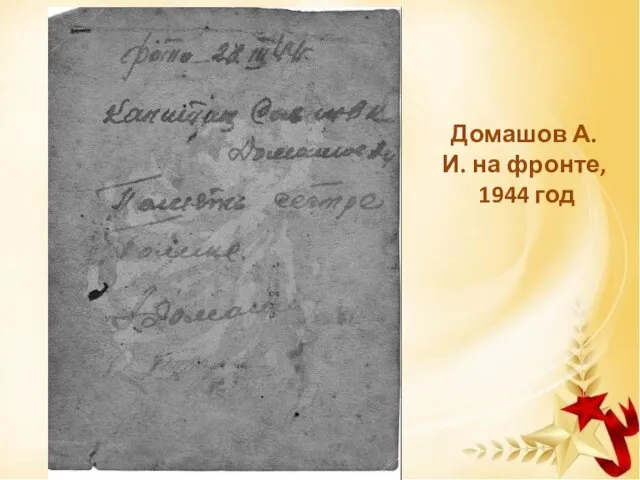 фото 28 III 44 г.
Капитан
Домашов
Память сестре
Галине.
Домаш
Домашов А.
И. на фронте,
1944 год